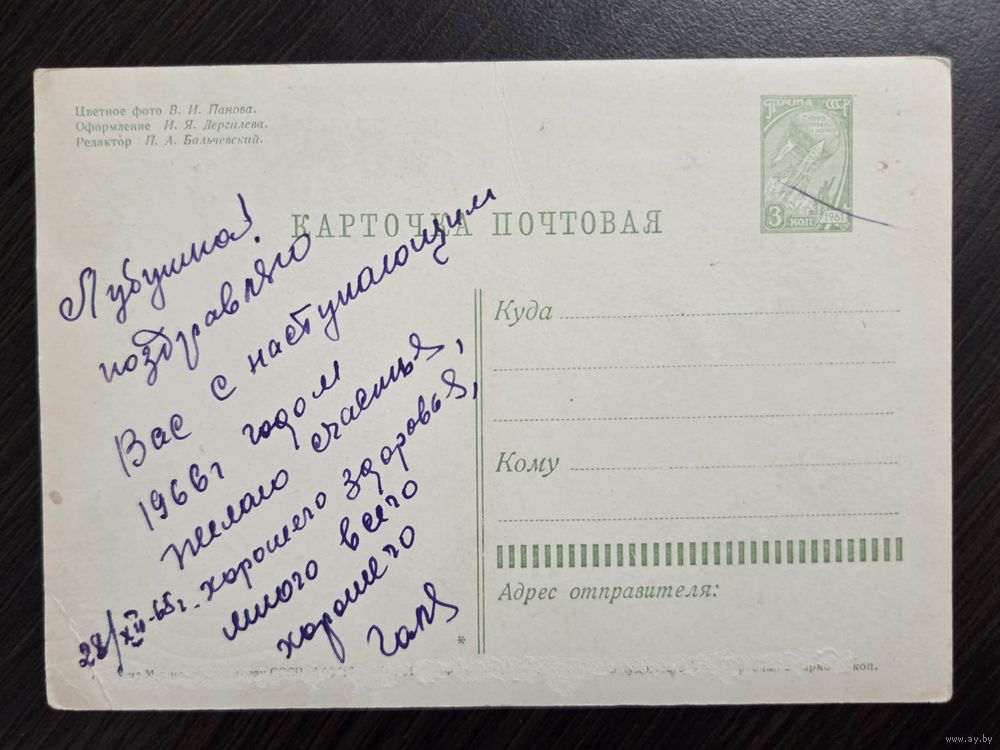 Цветное фото В. И. Панова.
Оформление И. Я. Дергилева.
Редактор П. А. Бальчевский.
ПОЧТА СССР
3 КОП
1961
КАРТОЧКА ПОЧТОВАЯ
Любушка!
поздравляю
Вас с наступающим
1966г годом
желаю счастья,
хорошего здоровья,
много всего
хорошего
Галя
28/XII-65г.
Куда
Кому
Адрес отправителя:
*
СССР
коп.
www.ay.by